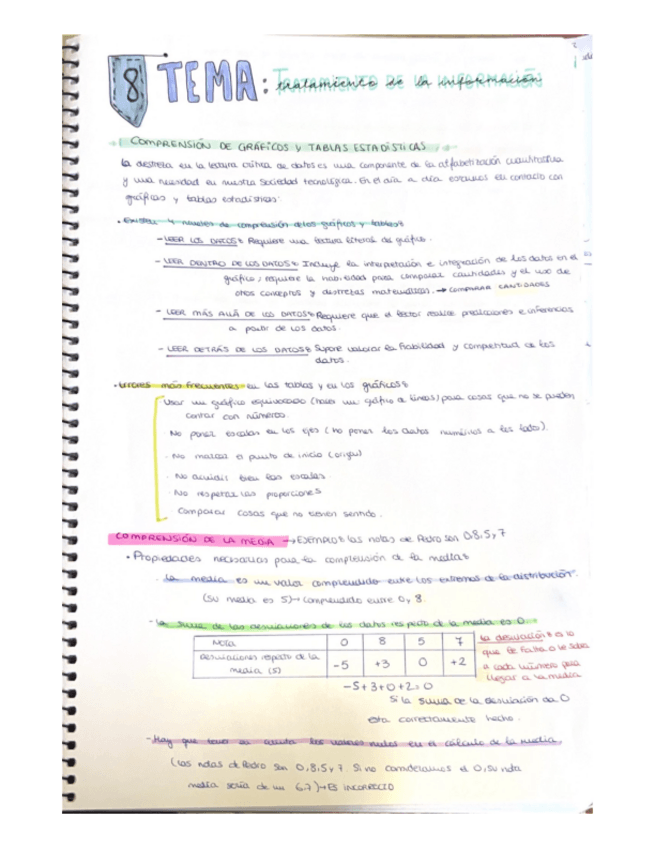 8 TEMA: Tratamiento de la información
COMPRENSIÓN DE GRÁFICOS Y TABLAS ESTADÍSTICAS
La destreza en la lectura crítica de datos es una componente de la alfabetización cuantitativa
y una necesidad en nuestra sociedad tecnológica. En el día a día estamos en contacto con
gráficos y tablas estadísticas.
• Existen 4 niveles de comprensión de los gráficos y tablas:
- LEER LOS DATOS: Requiere una lectura literal de gráfico.
- LEER DENTRO DE LOS DATOS: Incluye la interpretación e integración de los datos en el
gráfico, requiere la habilidad para comparar cantidades y el uso de
otros conceptos y destrezas matemáticas. → COMPARAR CANTIDADES
- LEER MÁS ALLÁ DE LOS DATOS: Requiere que el lector realice predicciones e inferencias
a partir de los datos.
- LEER DETRÁS DE LOS DATOS: Supone valorar la fiabilidad y completitud de los
datos.
• Errores más frecuentes en las tablas y en los gráficos:
Usar un gráfico equivocado (hacer un gráfico de líneas) para cosas que no se pueden
contar con números.
· No poner escalas en los ejes (no poner los datos numéricos a los lados).
· No marcar el punto de inicio (origen)
· No dividir bien las escalas.
· No respetar las proporciones
· Comparar cosas que no tienen sentido.
COMPRENSIÓN DE LA MEDIA → EJEMPLO: las notas de Pedro son 0,8,5,7
• Propiedades necesarias para la comprensión de la media:
· La media es un valor comprendido entre los extremos de la distribución.
(Su media es 5) → Comprendido entre 0 y 8.
- La suma de las desviaciones de los datos respecto de la media es 0.
Nota 0 8 5 7
Desviaciones respecto de la media (5) -5 +3 0 +2
La desviación es lo
que le falta o le sobra
a cada número para
llegar a la media
-5+3+0+2=0
Si la suma de la desviación da 0
esta correctamente hecho.
- Hay que tener en cuenta los valores nulos en el cálculo de la media.
(Las notas de Pedro son 0,8,5 y 7. Si no consideramos el 0, su nota
media sería de un 6,7) → ES INCORRECTO